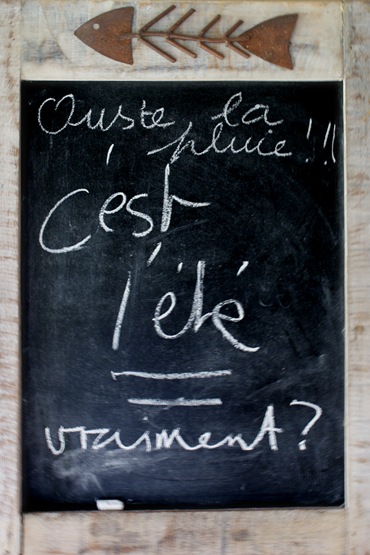 Ouste la
pluie!!!
c'est
l'été
vraiment?